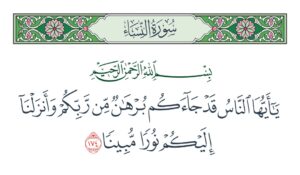 سُورَةُ النِّسَاءِ
بِسْمِ اللَّهِ الرَّحْمَٰنِ الرَّحِيمِ
يَٰٓأَيُّهَا ٱلنَّاسُ قَدْ جَآءَكُم بُرْهَٰنٌ مِّن رَّبِّكُمْ وَأَنزَلْنَآ
إِلَيْكُمْ نُورًا مُّبِينًا ١٧٤